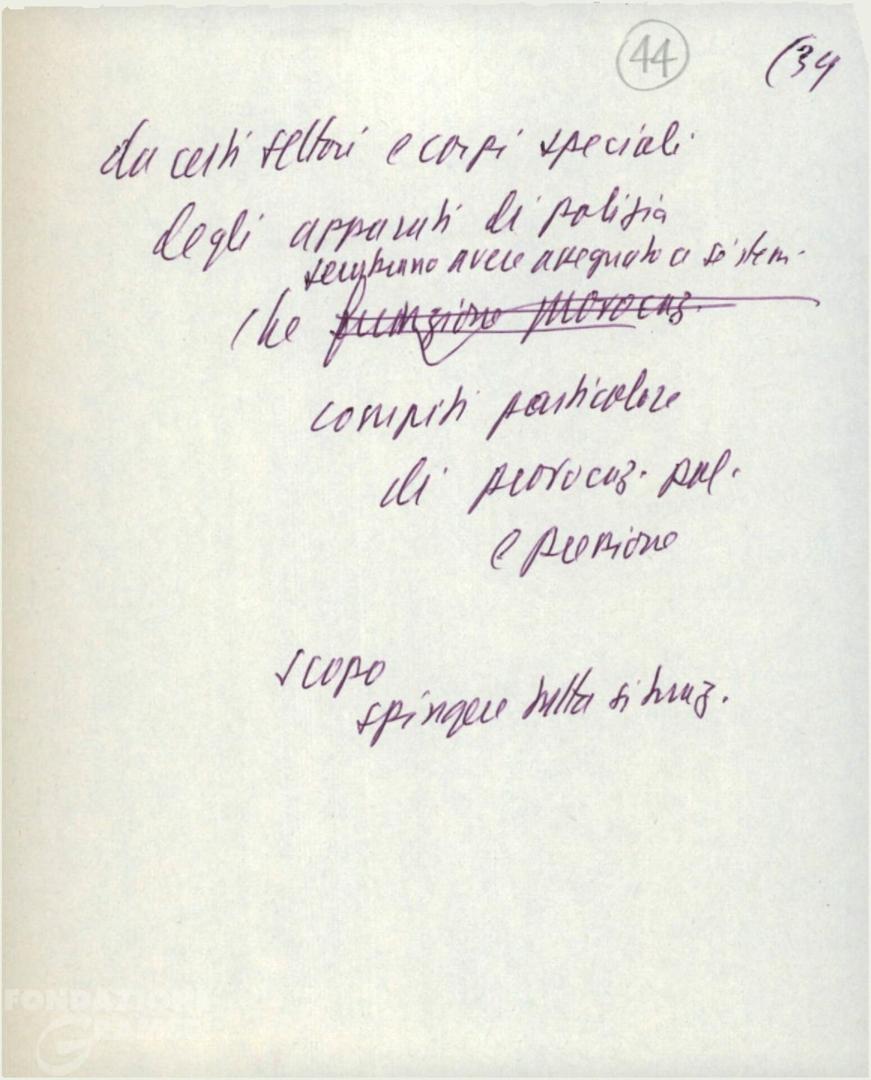 44 (34
da certi settori e corpi speciali
degli apparati di polizia
sembrano avere assegnato a sistem.
che funzione provocaz.
compiti particolare
di provocaz. pol.
e pressione
scopo
spingere tutta situaz.
FONDAZIONE
GRAMSCI